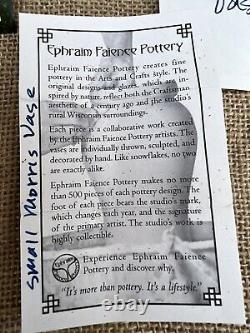 Vas
Ephraim Faience Pottery
Ephraim Faience Pottery creates fine
pottery in the Arts and Crafts style. The
original designs and glazes, which are in-
spired by nature, reflect both the Craftsman
aesthetic of a century ago and the studio's
rural Wisconsin surroundings.
Each piece is a collaborative work created
by the Ephraim Faience Pottery artists. The
vases are individually thrown, sculpted, and
decorated by hand. Like snowflakes, no two
are exactly alike.
Ephraim Faience Pottery makes no more
than 500 pieces of each pottery design. The
foot of each piece bears the studio's mark,
which changes each year, and the signature
of the primary artist. The studio's work is
highly collectible.
Experience Ephraim Faience
Pottery and discover why.
"It's more than pottery. It's a lifestyle."
small Morris Vase